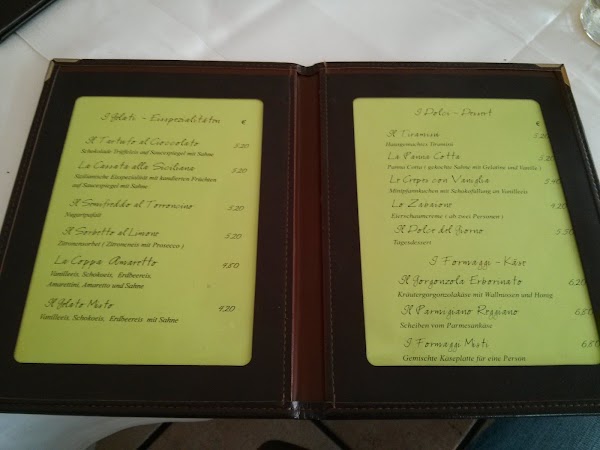 I Gelati - Eisspezialitäten
€
Il Tartufo al Cioccolato 5,20
Schokolade Trüffeleis auf Saucespiegel mit Sahne
La Cassata alla Siciliana 5,20
Sizilianische Eisspezialität mit kandierten Früchten
auf Saucespiegel mit Sahne
Il Semifreddo al Torroncino 5,20
Nugartpafait
Il Sorbetto al Limone 5,20
Zitronensorbet ( Zitroneneis mit Prosecco )
La Coppa Amaretto
Vanilleeis, Schokoeis, Erdbeereis,
Amarettini, Amaretto und Sahne
Il Gelato Misto 4,20
Vanilleeis, Schokoeis, Erdbeereis mit Sahne
I Dolci - Dessert
€
Il Tiramisu 5,20
Hausgemachtes Tiramisu
La Panna Cotta 5,20
Panna Cotta ( gekochte Sahne mit Gelatine und Vanille )
Le Crepes con Vaniglia 5,40
Minipfannkuchen mit Schokofüllung an Vanilleeis
Lo Zabaione 5,20
Eierschaumcreme ( ab zwei Personen )
Il Dolce del Giorno 5,50
Tagesdessert
I Formaggi - Käse
Il Gorgonzola Erborinato 6,20
Kräutergorgonzolakäse mit Walnussen und Honig
Il Parmigiano Reggiano 6,80
Scheiben vom Parmesankäse
I Formaggi Misti 6,80
Gemischte Käseplatte für eine Person